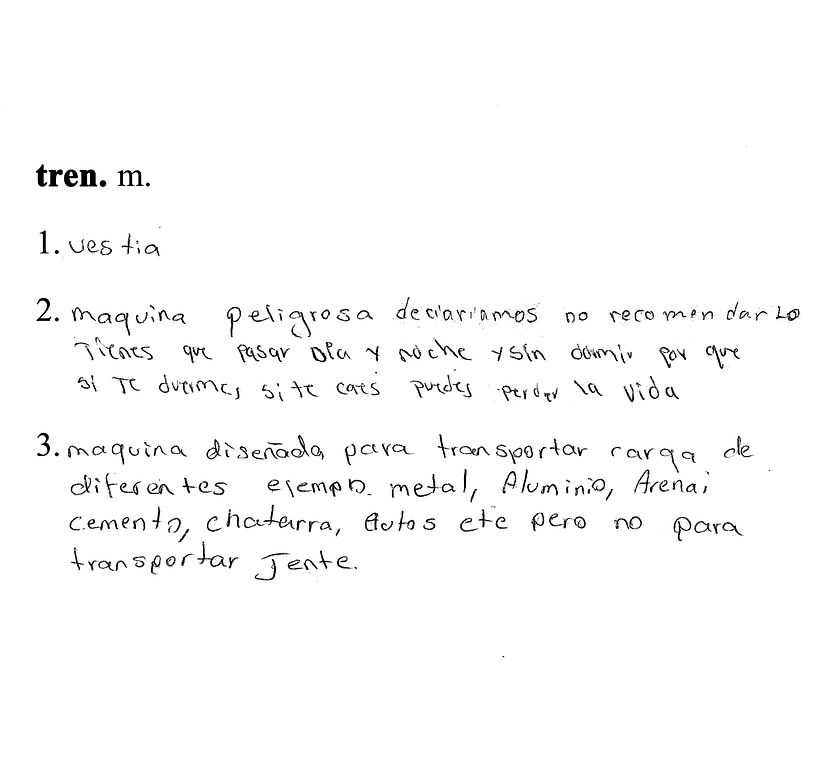 tren. m.
1. vestia
2. maquina peligrosa deciariamos no recomendarlo
Tienes que pasar Dia y noche y sin dormir por que
si Te duermes si te caes puedes perder la vida
3. maquina diseñada para transportar carga de
diferentes ejemplo. metal, Aluminio, Arena,
cemento, chatarra, autos etc pero no para
transportar Jente.